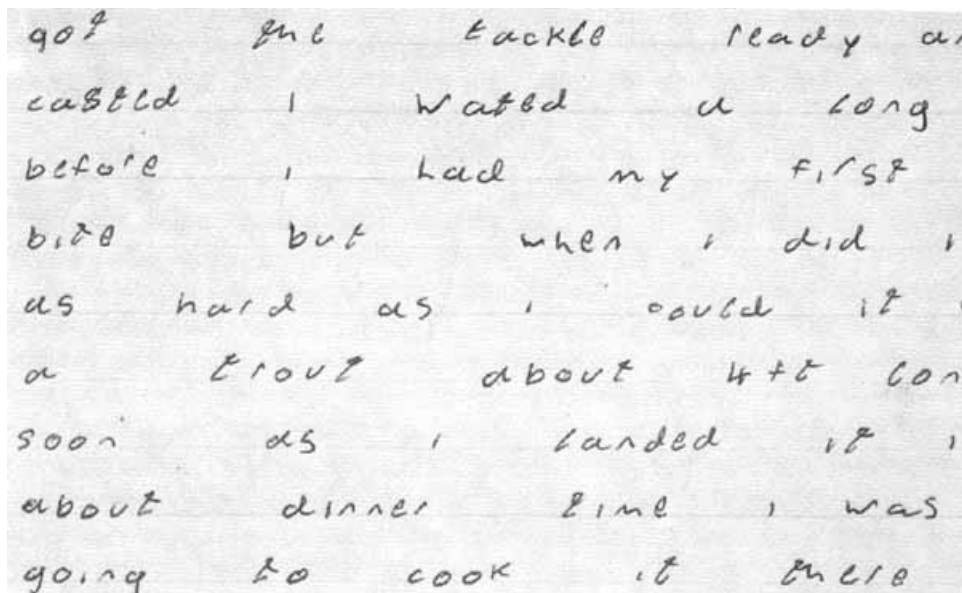 got the tackle ready
casted i wated a long
before i had my first
bite but when i did
as hard as i could it
a trout about 4ft
soon as i landed it
about dinner time i was
going to cook it there